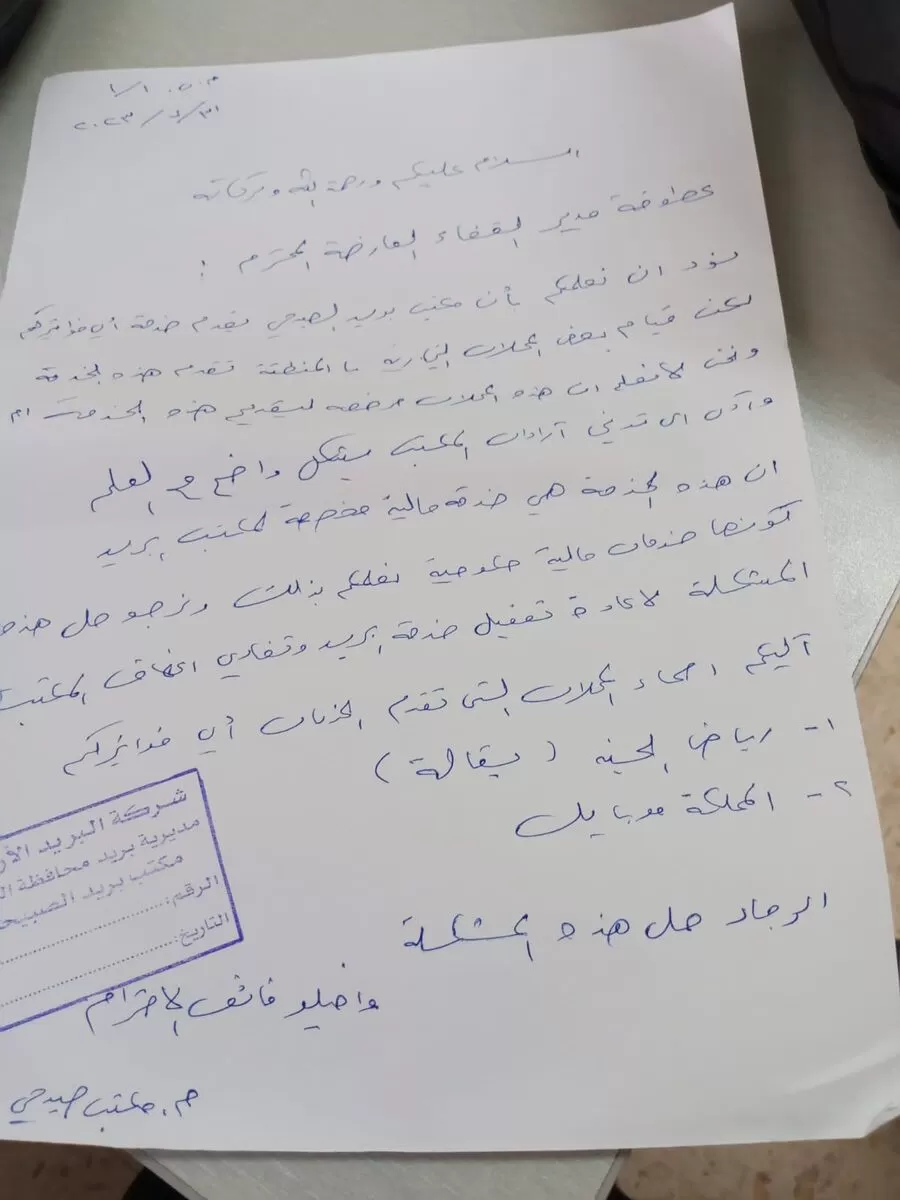 ٢٠٢٣/٨/٣١
السلام عليكم ورحمة الله وبركاته
عطوفة مدير القضاء العارضة المحترم :
نود ان نعلمكم بأن مكتب بريد الصبيحي يقدم خدمة أي فواتيركم
لكن قيام بعض المحلات التجارية بالمنطقة تقدم هذه الخدمة
ونحن لا نعلم ان هذه المحلات مرخصه لتقديم هذه الخدمات ام
وأدى الى تدني آرادات المكتب بشكل واضح مع العلم
ان هذه الخدمة هي خدمة مالية مخصصة لمكتب بريد
كونها خدمات مالية حكومية نعلمكم بذلك ونرجو حل هذه
المشكلة لاعادة تفعيل خدمة البريد وتفادي المكتب
آليكم اسماء المحلات التي تقدم الخدمات أي فواتيركم
١- رياض الجنه (بقالة)
٢- المملكة موبايل
الرجاء حل هذه المشكلة
واقبلو فائف الاحترام
م. مكتب صبيحي
شركة البريد الأر
مديرية بريد محافظة ال
مكتب بريد الصبيح
الرقم:
التاريخ: